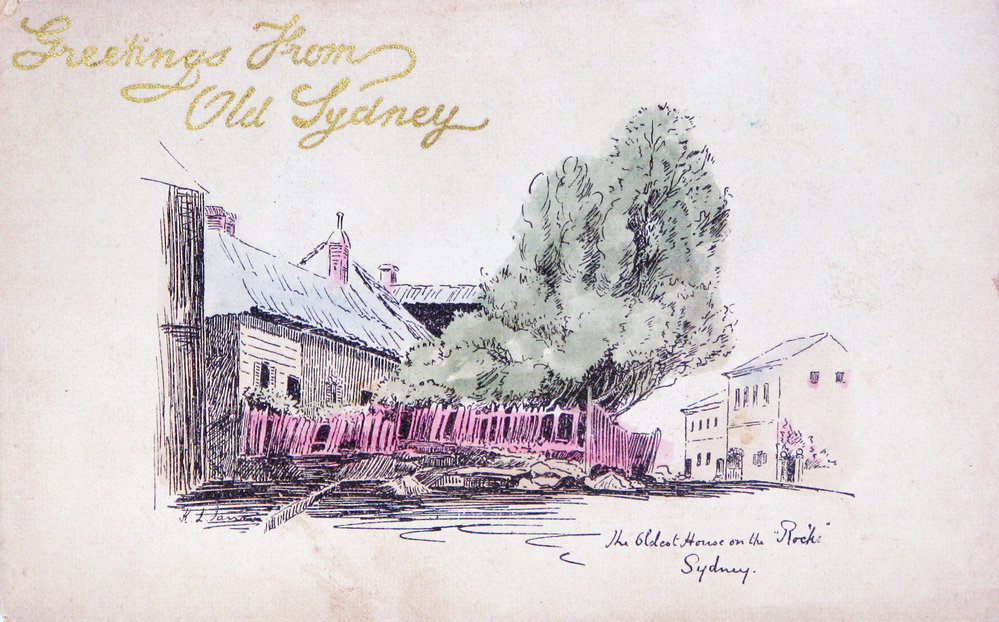 Greetings From
Old Sydney
The Oldest House on the "Rocks"
Sydney.